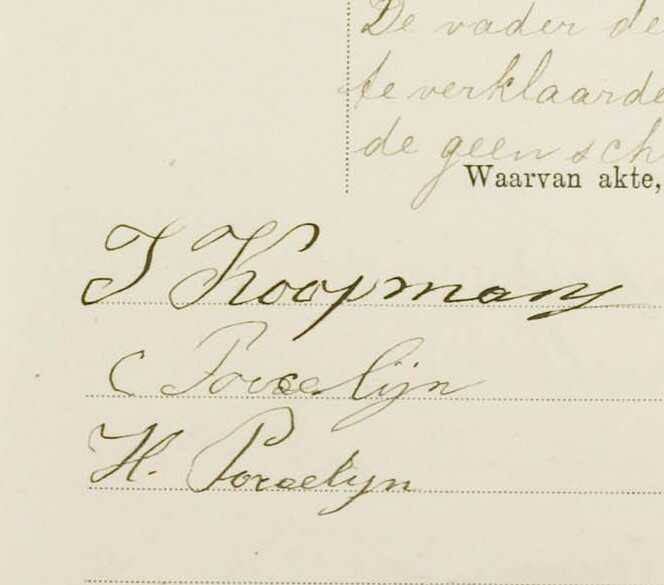 De vader de
te verklaarde
de geen sch
Waarvan akte,
J Koopmans
C Porcelijn
H. Porcelijn